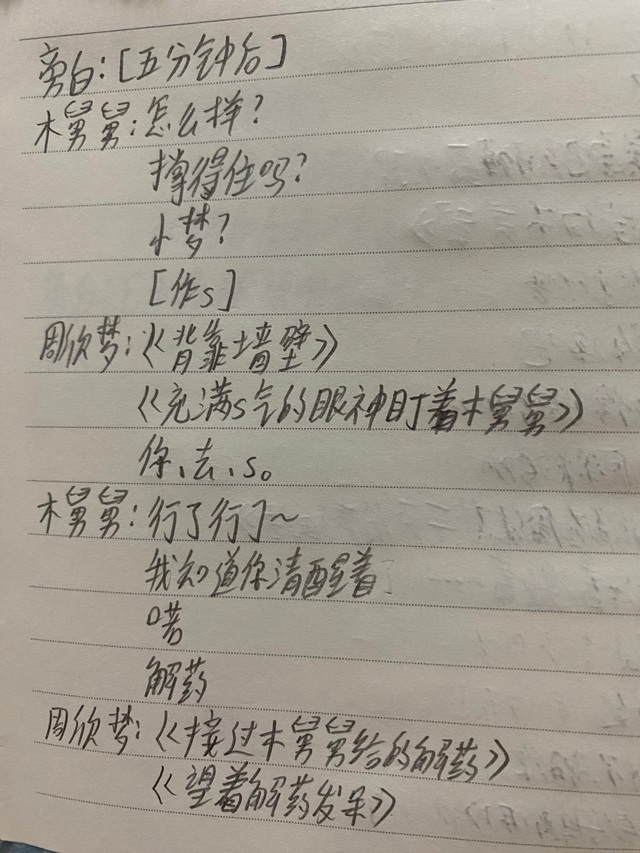 旁白:[五分钟后]
木舅舅:怎么样?
撑得住吗?
小梦?
[作s]
周欣梦:《背靠墙壁》
《充满s气的眼神盯着木舅舅》
你、去、s。
木舅舅:行了行了~
我知道你清醒着
喏
解药
周欣梦:《接过木舅舅给的解药》
《望着解药发呆》